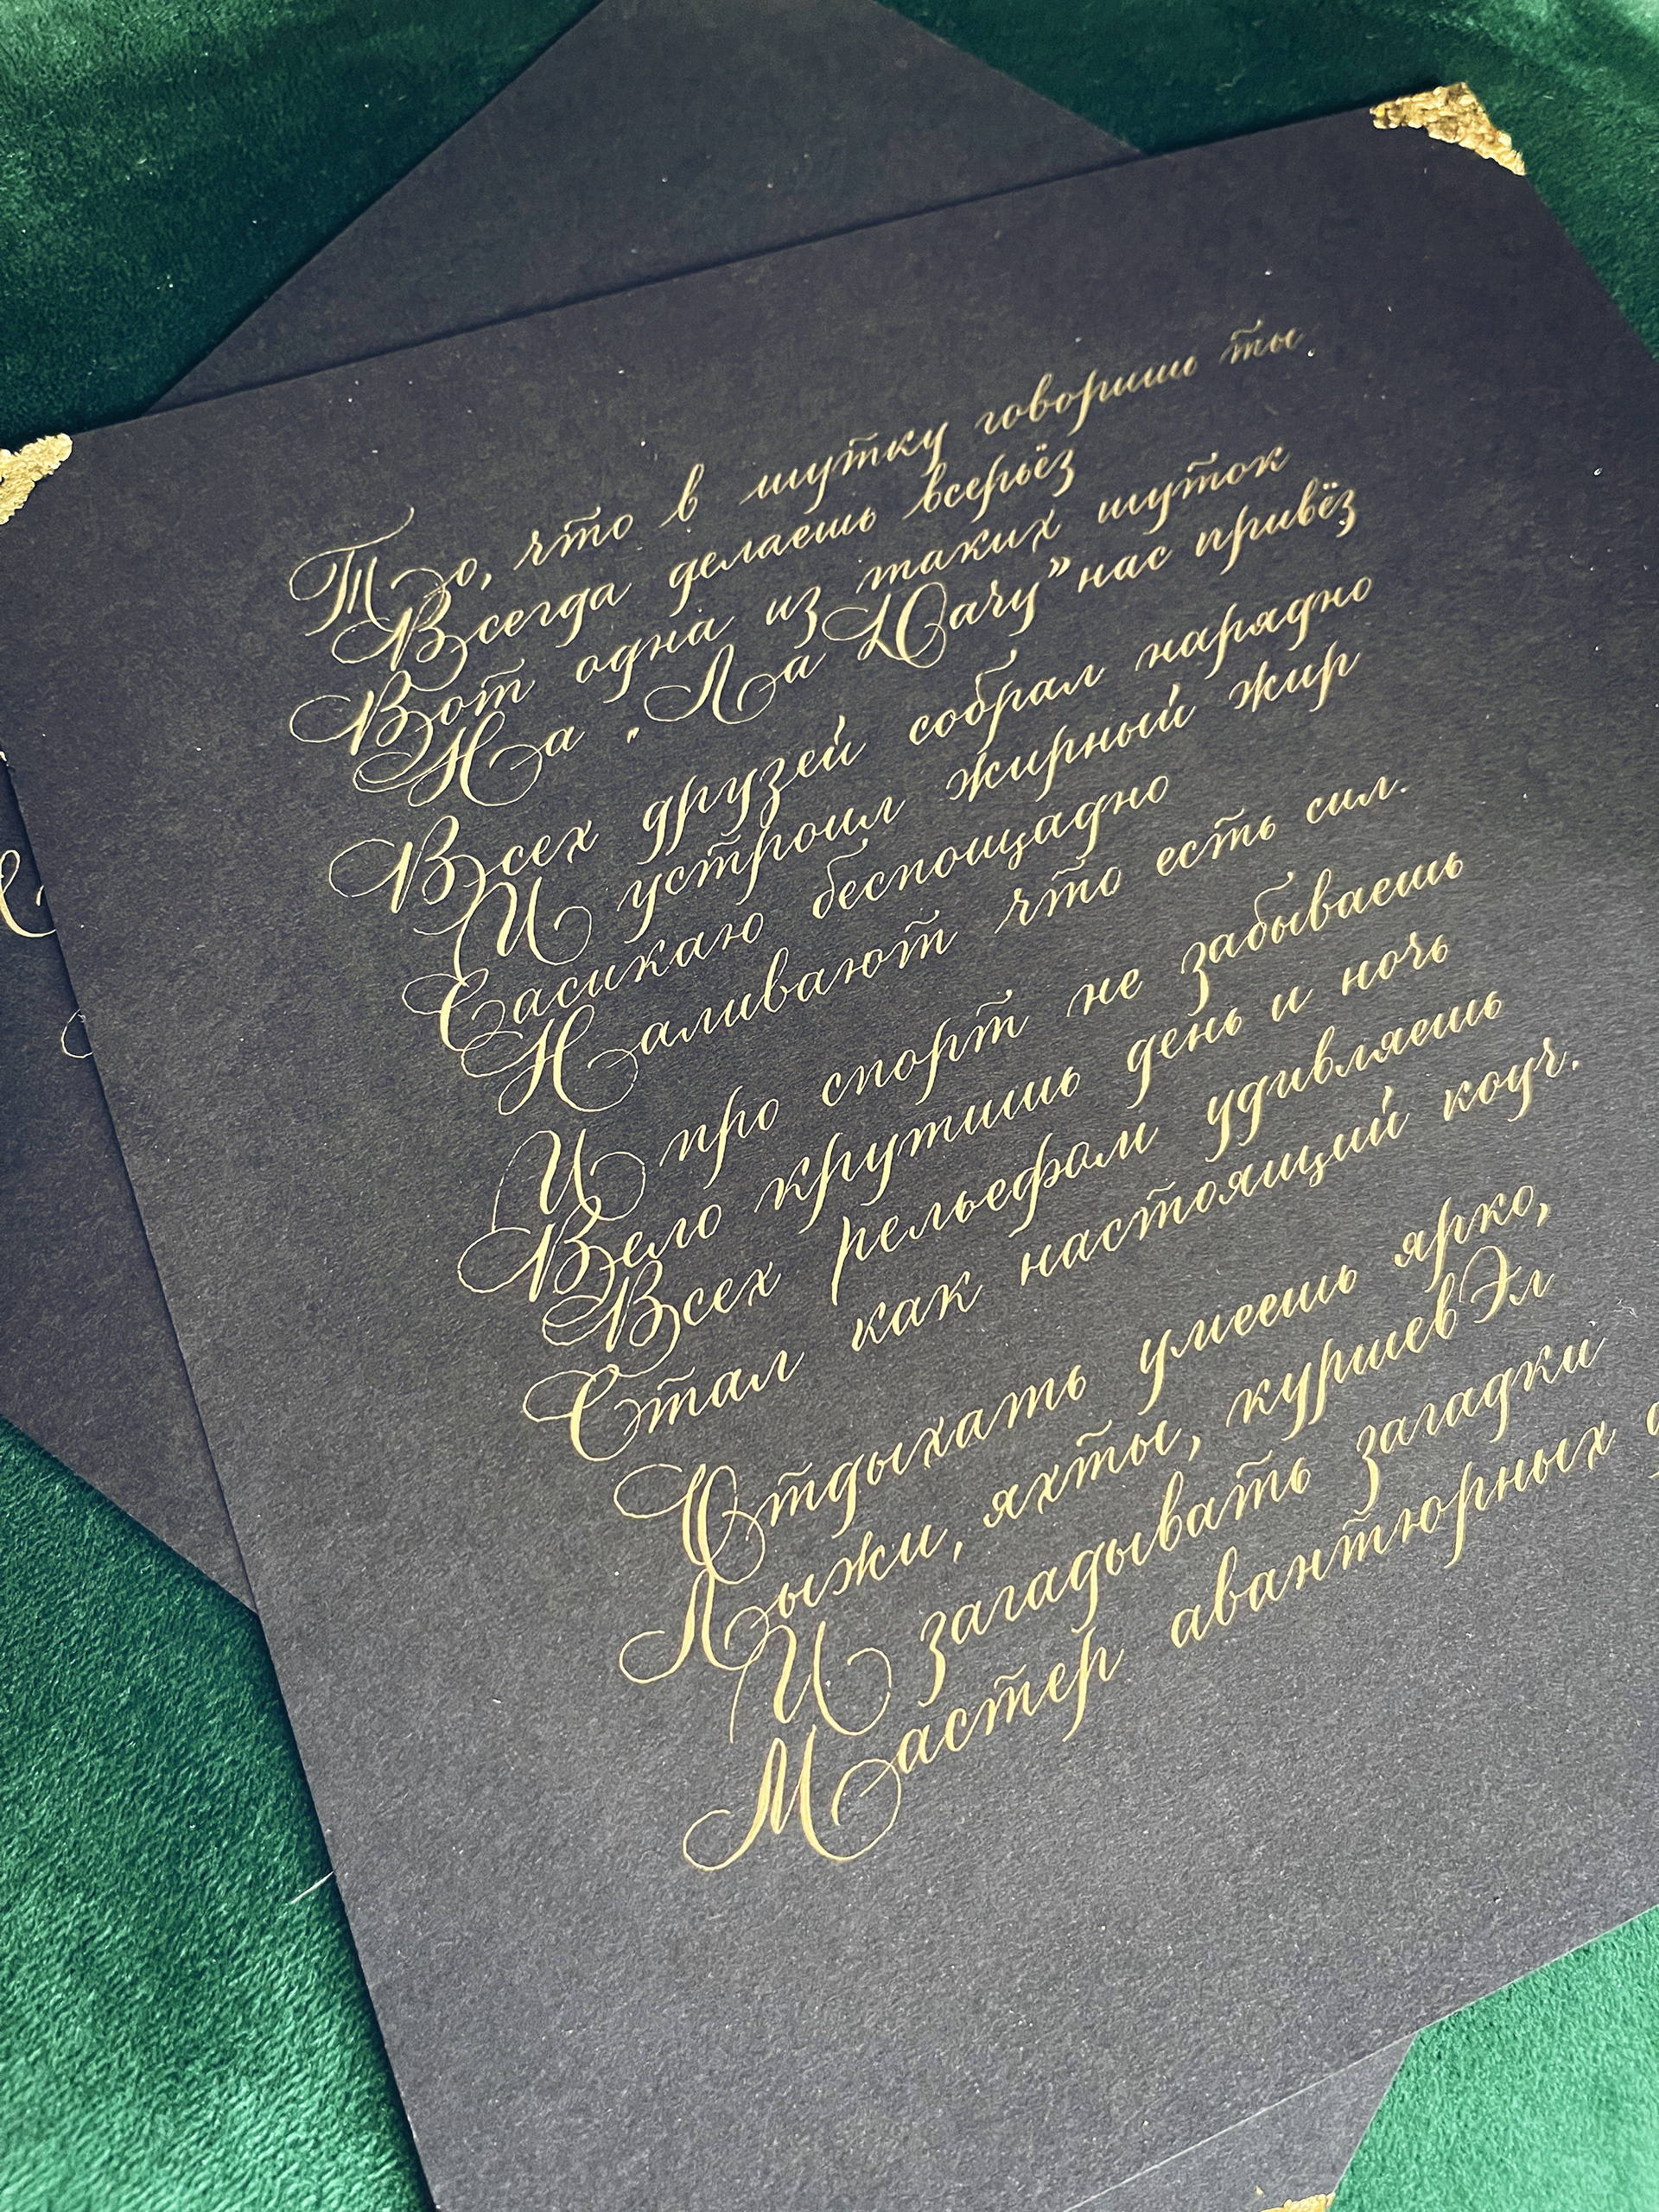 То, что в шутку говоришь ты
Всегда делаешь всерьёз
Вот одна из таких шуток
На "Ла Дачу" нас привёз
Всех друзей собрал нарядно
И устроил жирный жир
Сасикаю беспощадно
Наливают что есть сил.
И про спорт не забываешь
Вело крутишь день и ночь
Всех рельефом удивляешь
Стал как настоящий коуч.
Отдыхать умеешь ярко,
Лыжи, яхты, куршевЭл
И загадывать загадки
Мастер авантюрных